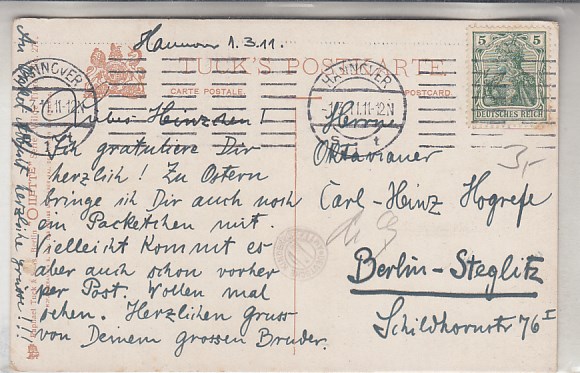 Hannover 1.3.11.
TUCK'S POST CARTE
CARTE POSTALE.
POSTCARD.
HANNOVER
HANNOVER
11.11-12N
5 5
DEUTSCHES REICH
Liebes Heinzchen!
Ich gratuliere Dir
herzlich! Zu Ostern
bringe ich Dir auch noch
ein Packetchen mit.
Vielleicht kommt es
aber auch schon vorher
per Post. Wollen mal
sehen. Herzlichen Gruss
von Deinem grossen Bruder.
Herrn
Oktavianer
Carl-Heinz Hogrefe
Berlin-Steglitz
Schildhornstr 76 I
3,-
An
herzliche Grüsse!!!
OILETTE
Raphael Tuck &